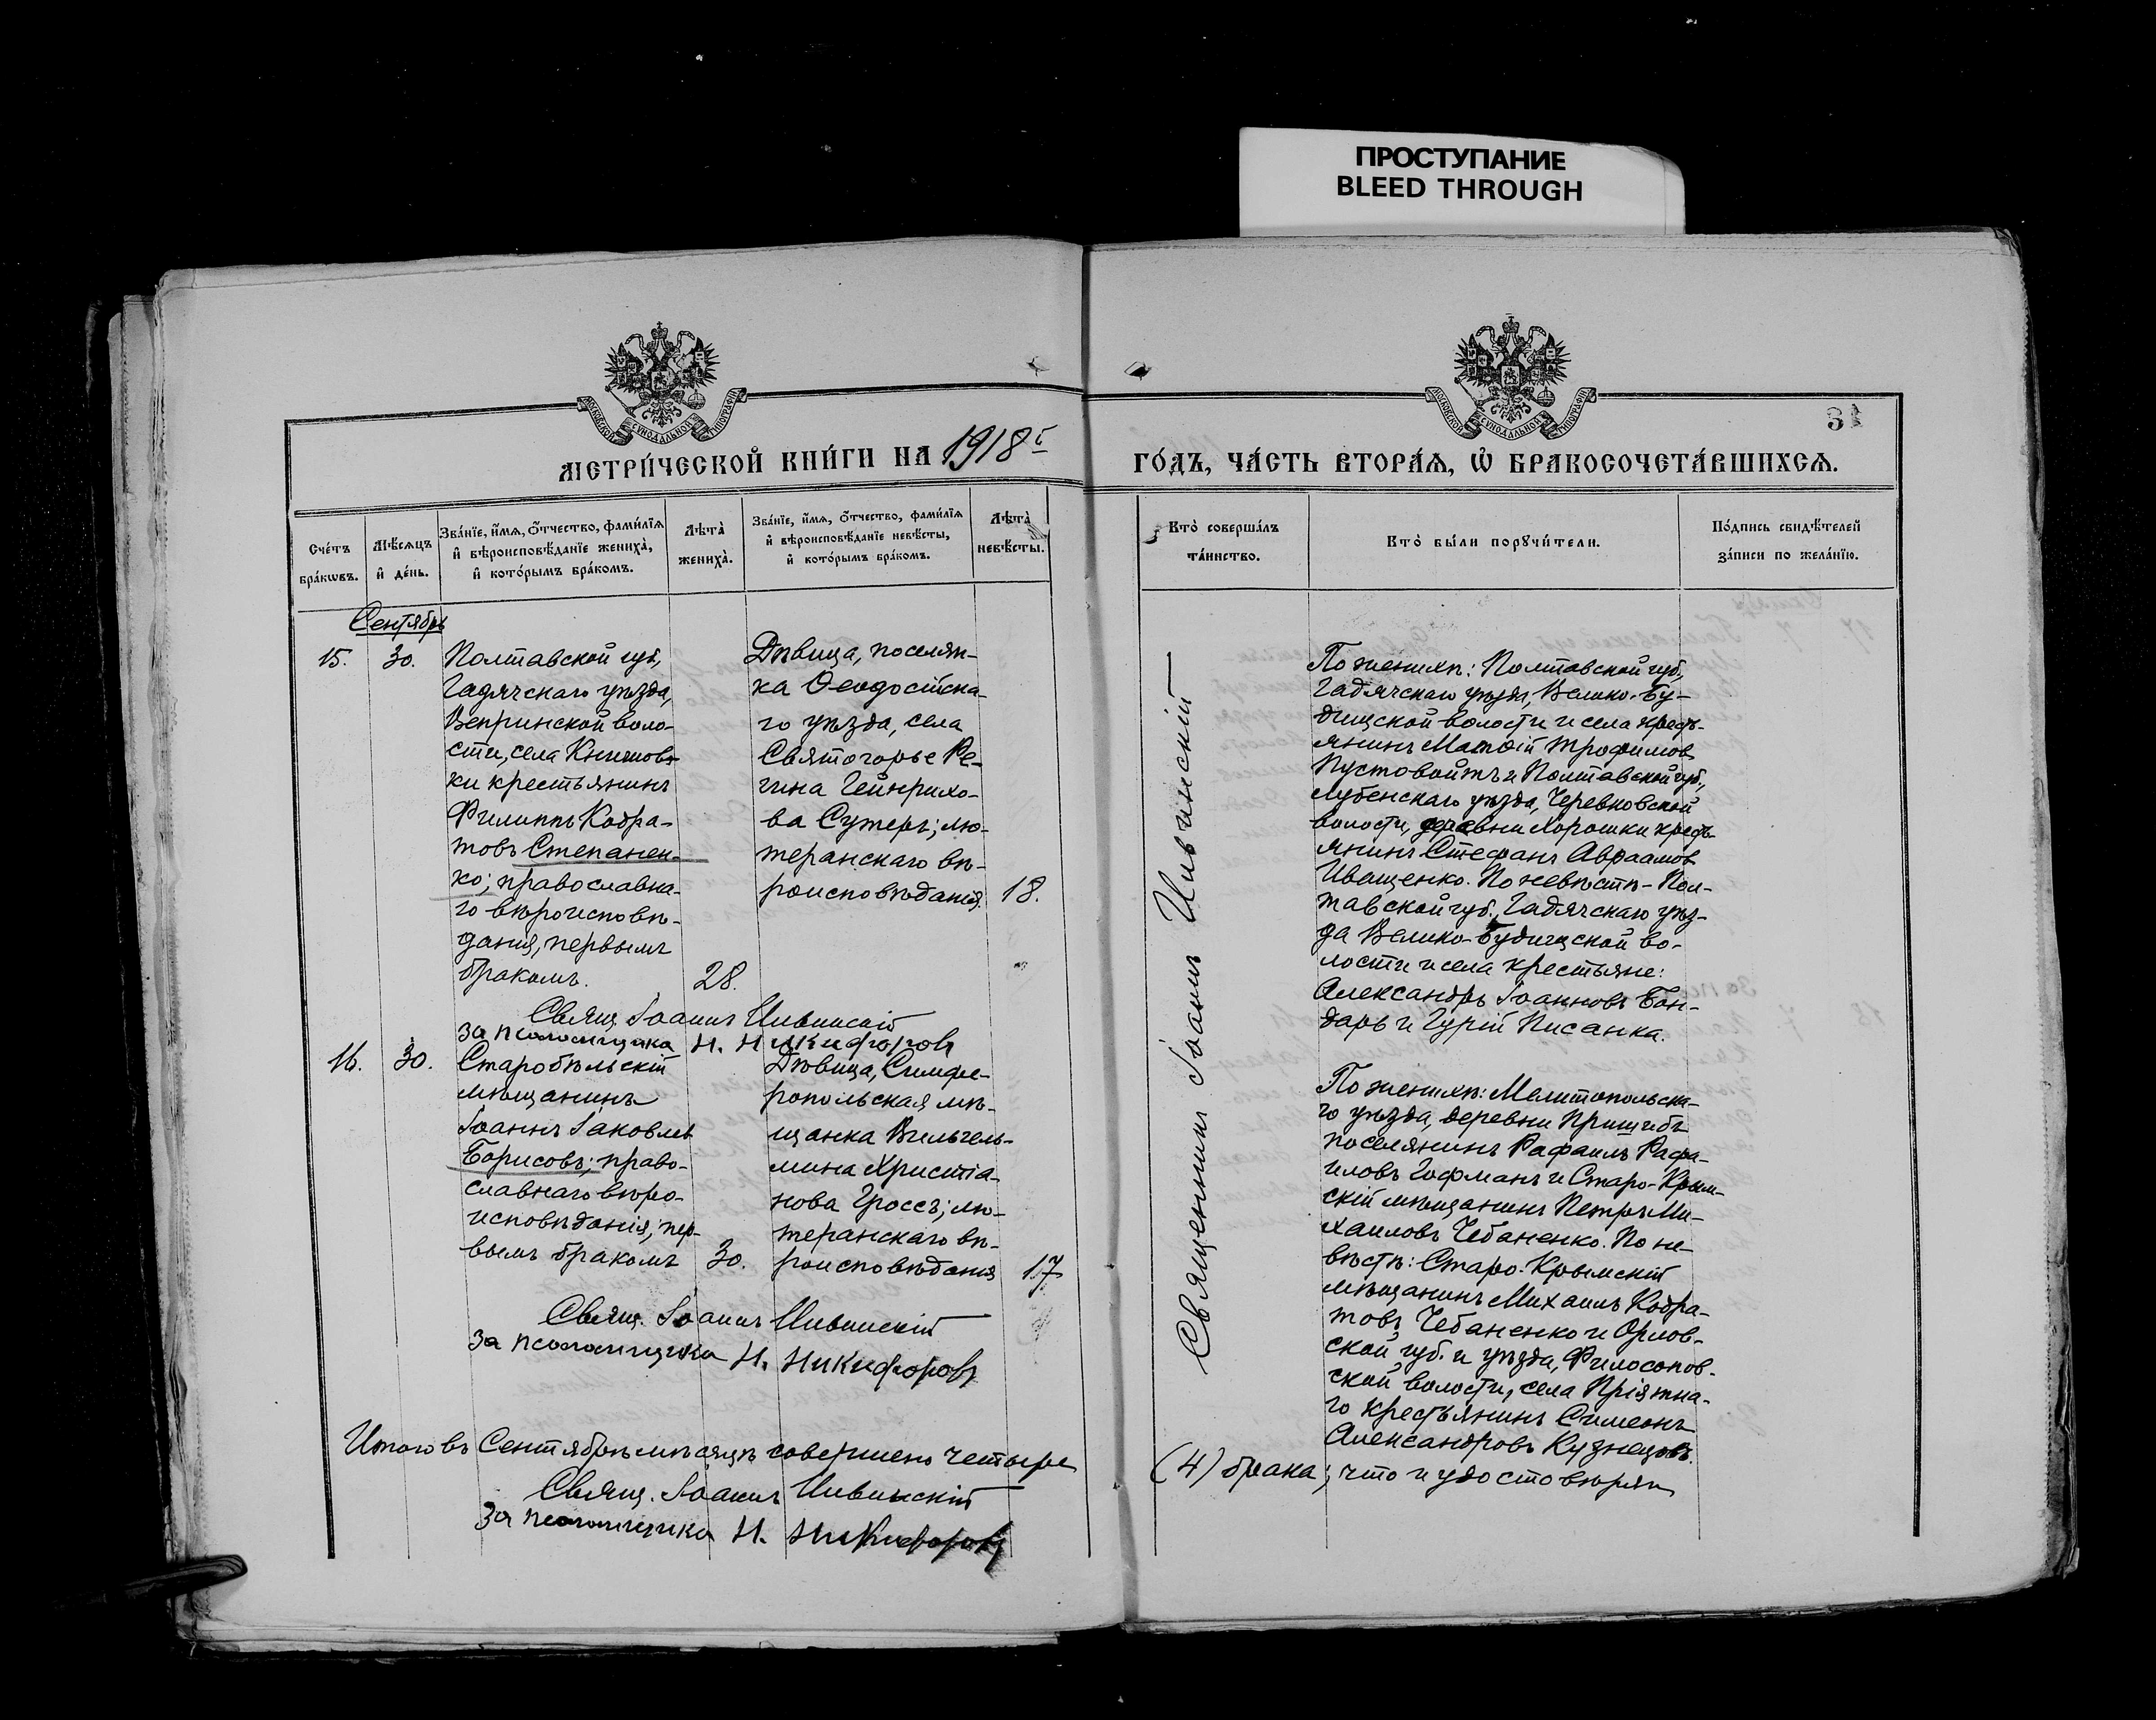 ПРОСТУПАНИЕ
BLEED THROUGH
МОСКОВСКОЙ СѴНОДАЛЬНОЙ ТИПОГРАФІИ
МОСКОВСКОЙ СѴНОДАЛЬНОЙ ТИПОГРАФІИ
31
МЕТРИ́ЧЕСКОЙ КНИ́ГИ НА 1918 г.
ГО́ДЪ, ЧА́СТЬ ВТОРА́Ѧ, Ѡ҆ БРАКОСОЧЕТА́ВШИХСѦ.
Сче́тъ
бра́кѡвъ.
Мѣ́сѧцъ
и҆ де́нь.
Зва́нїе, и҆́мѧ, о҆́тчество, фами́лїѧ
и҆ вѣроисповѣ́данїе жениха̀,
и҆ кото́рымъ бра́комъ.
Лѣта̀
жениха̀.
Зва́нїе, и҆́мѧ, о҆́тчество, фами́лїѧ
и҆ вѣроисповѣ́данїе невѣ́сты,
и҆ кото́рымъ бра́комъ.
Лѣта̀
невѣ́сты.
Кто̀ соверша́лъ
та́инство.
Кто̀ бы́ли порꙋчи́тели.
По́дпись свидѣ́телей
за́писи по жела́нїю.
Сентябрь
15.
30.
Полтавской губ.,
Гадячскаго уѣзда,
Веприпской воло-
сти, села Книшов-
ки крестьянинъ
Филиппъ Кодра-
товъ Степанен-
ко; православна-
го вѣроисповѣ-
данія, первымъ
бракомъ.
28.
Дѣвица, поселян-
ка Ѳеодосійска-
го уѣзда, села
Святогорье Ре-
гина Гейнрихо-
ва Сутеръ; лю-
теранскаго вѣ-
роисповѣданія.
18.
Священникъ Іоаннъ Ивчинскій
По женихѣ: Полтавской губ.,
Гадячскаго уѣзда, Велико-Бу-
дищской волости и села кресть-
янинъ Матѳій Трофимовъ
Пустовойтъ и Полтавской губ.,
Лубенскаго уѣзда, Черевковской
волости, деревни Хорошки кресть-
янинъ Стефанъ Авраамовъ
Иващенко. По невѣстѣ - Пол-
тавской губ., Гадячскаго уѣз-
да Велико-Будищской во-
лости и села крестьяне:
Александръ Іоанновъ Бон-
дарь и Гурій Писанка.
Свящ. Іоаннъ Ивчинскій
За псаломщика Н. Никифоровъ
16.
30.
Старобѣльскій
мѣщанинъ
Іоаннъ Іаковлевъ
Борисовъ; право-
славнаго вѣро-
исповѣданія; пер-
вымъ бракомъ
30.
Дѣвица, Симфе-
ропольская мѣ-
щанка Вильгель-
мина Христіа-
нова Гроссъ; лю-
теранскаго вѣ-
роисповѣданія
17
По женихѣ: Мелитопольска-
го уѣзда, деревни Пришибъ
поселянинъ Рафаилъ Рафа-
иловъ Гофманъ и Старо-Крым-
скій мѣщанинъ Петръ Ми-
хаиловъ Чебаненко. По не-
вѣстѣ: Старо-Крымскій
мѣщанинъ Михаилъ Кодра-
товъ Чебаненко и Орлов-
ской губ. и уѣзда, Философов-
ской волости, села Пріятна-
го крестьянинъ Симеонъ
Александровъ Кузнецовъ.
Свящ. Іоаннъ Ивчинскій
За псаломщика Н. Никифоровъ
Итого въ Сентябрѣ мѣсяцѣ совершено четыре
(4) брака; что и удостовѣряю
Свящ. Іоаннъ Ивчинскій
За псаломщика Н. Никифоровъ